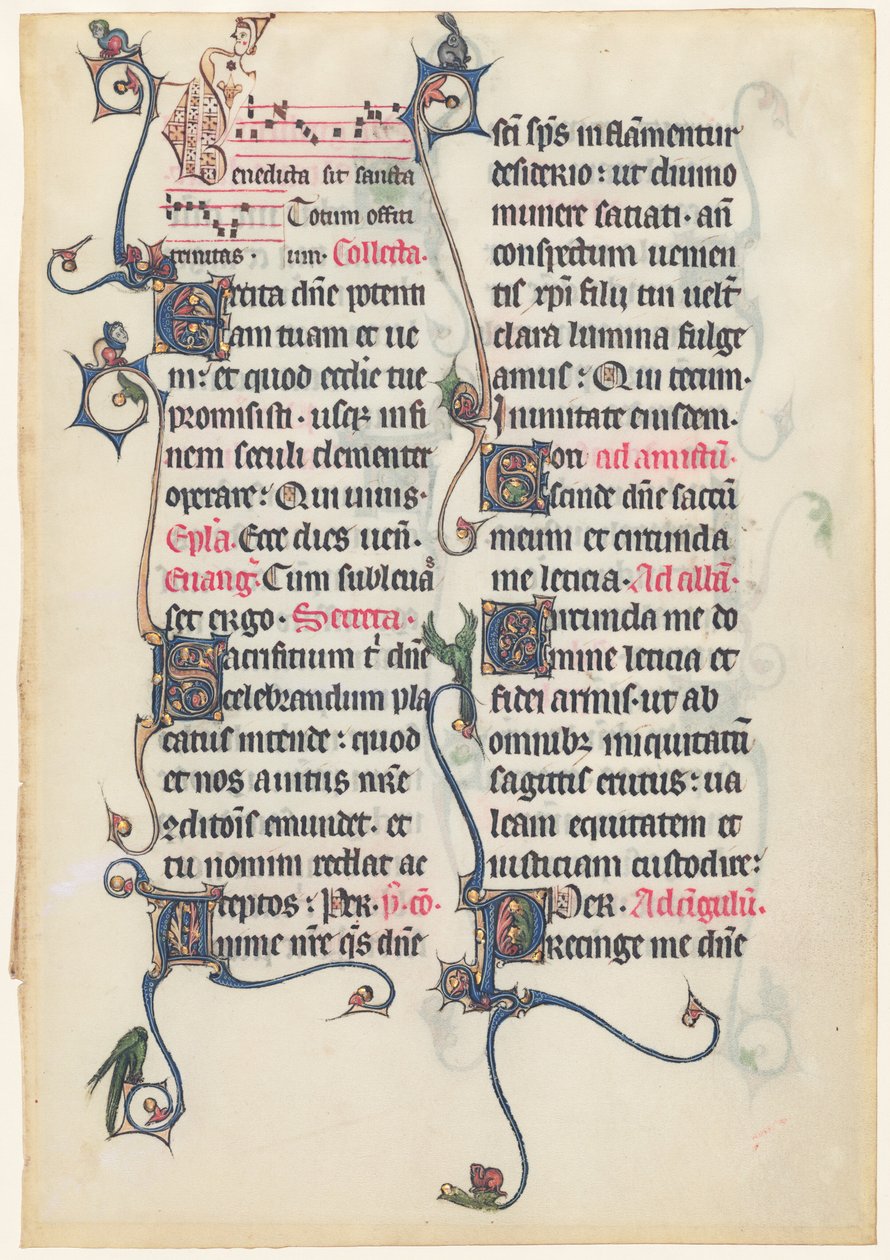 Benedicta sit sancta
Totum offiti
trinitas · um· Collecta·
Excita dn̄e potenti
am tuam et ue
ni: et quod eccl̄ie tue
promisisti · usq̢ in fi
nem seculi clementer
operare: Qui uiuis·
Epl̄a· Ecce dies uen̄·
Euang̃· Cum subleuaˢ
set ergo · Secreta·
Sacrifitium t̓ dn̄e
celebrandum pla
catus intende : quod
et nos a uitiis nr̄e
ꝯditoīs emundet· et
tuo nomini reddat ac
ceptos : Per· p̄·cō·
Anime nr̄e q̄s dn̄e
sc̄i sp̄s inflām̄entur
desiderio : ut diuino
munere satiati· an̄
conspectum uenien
tis xp̄i filij tui uelt̄
clara lumina fulge
amus : Qui tecum·
In unitate eiusdem·
Con ad amictū·
scinde dn̄e saccū
meum et circunda
me leticia· Ad albā·
Circunda me do
mine leticia et
fidei armis· ut ab
omnibꝫ iniquitatū
sagittis erutus: ua
leam equitatem et
iusticiam custodire:
Per· Ad cīgulū·
Precinge me dn̄e